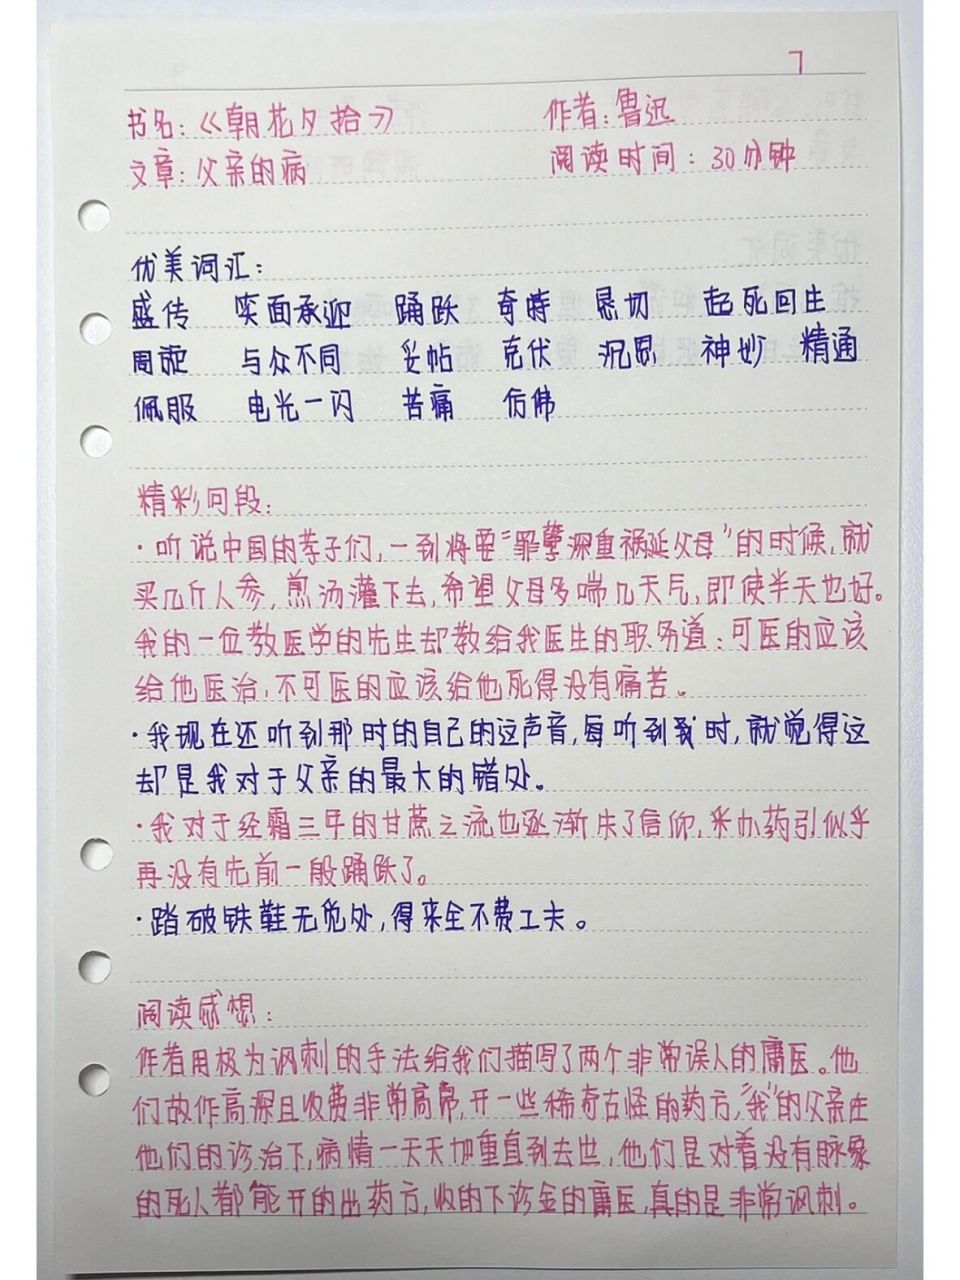 7
书名:《朝花夕拾》 作者:鲁迅
文章:父亲的病 阅读时间:30分钟
优美词汇:
盛传 笑面承迎 踊跃 奇特 恳切 起死回生
周旋 与众不同 妥帖 克伏 沉思 神妙 精通
佩服 电光一闪 苦痛 仿佛
精彩句段:
·听说中国的孝子们,一到将要“罪孽深重祸延父母”的时候,就
买几斤人参,煎汤灌下去,希望父母多喘几天气,即使半天也好。
我的一位教医学的先生却教给我医生的职务道:可医的应该
给他医治,不可医的应该给他死得没有痛苦。
·我现在还听到那时的自己的这声音,每听到我时,就觉得这
却是我对于父亲的最大的错处。
·我对于经霜三年的甘蔗之流也逐渐失了信仰,采办药引似乎
再没有先前一般踊跃了。
·踏破铁鞋无觅处,得来全不费工夫。
阅读感想:
作者用极为讽刺的手法给我们描写了两个非常误人的庸医。他
们故作高深且收费非常高常,开一些稀奇古怪的药方,“我”的父亲在
他们的诊治下,病情一天天加重直到去世,他们是对着没有脉象
的死人都能开的出药方,收的下诊金的庸医,真的是非常讽刺。